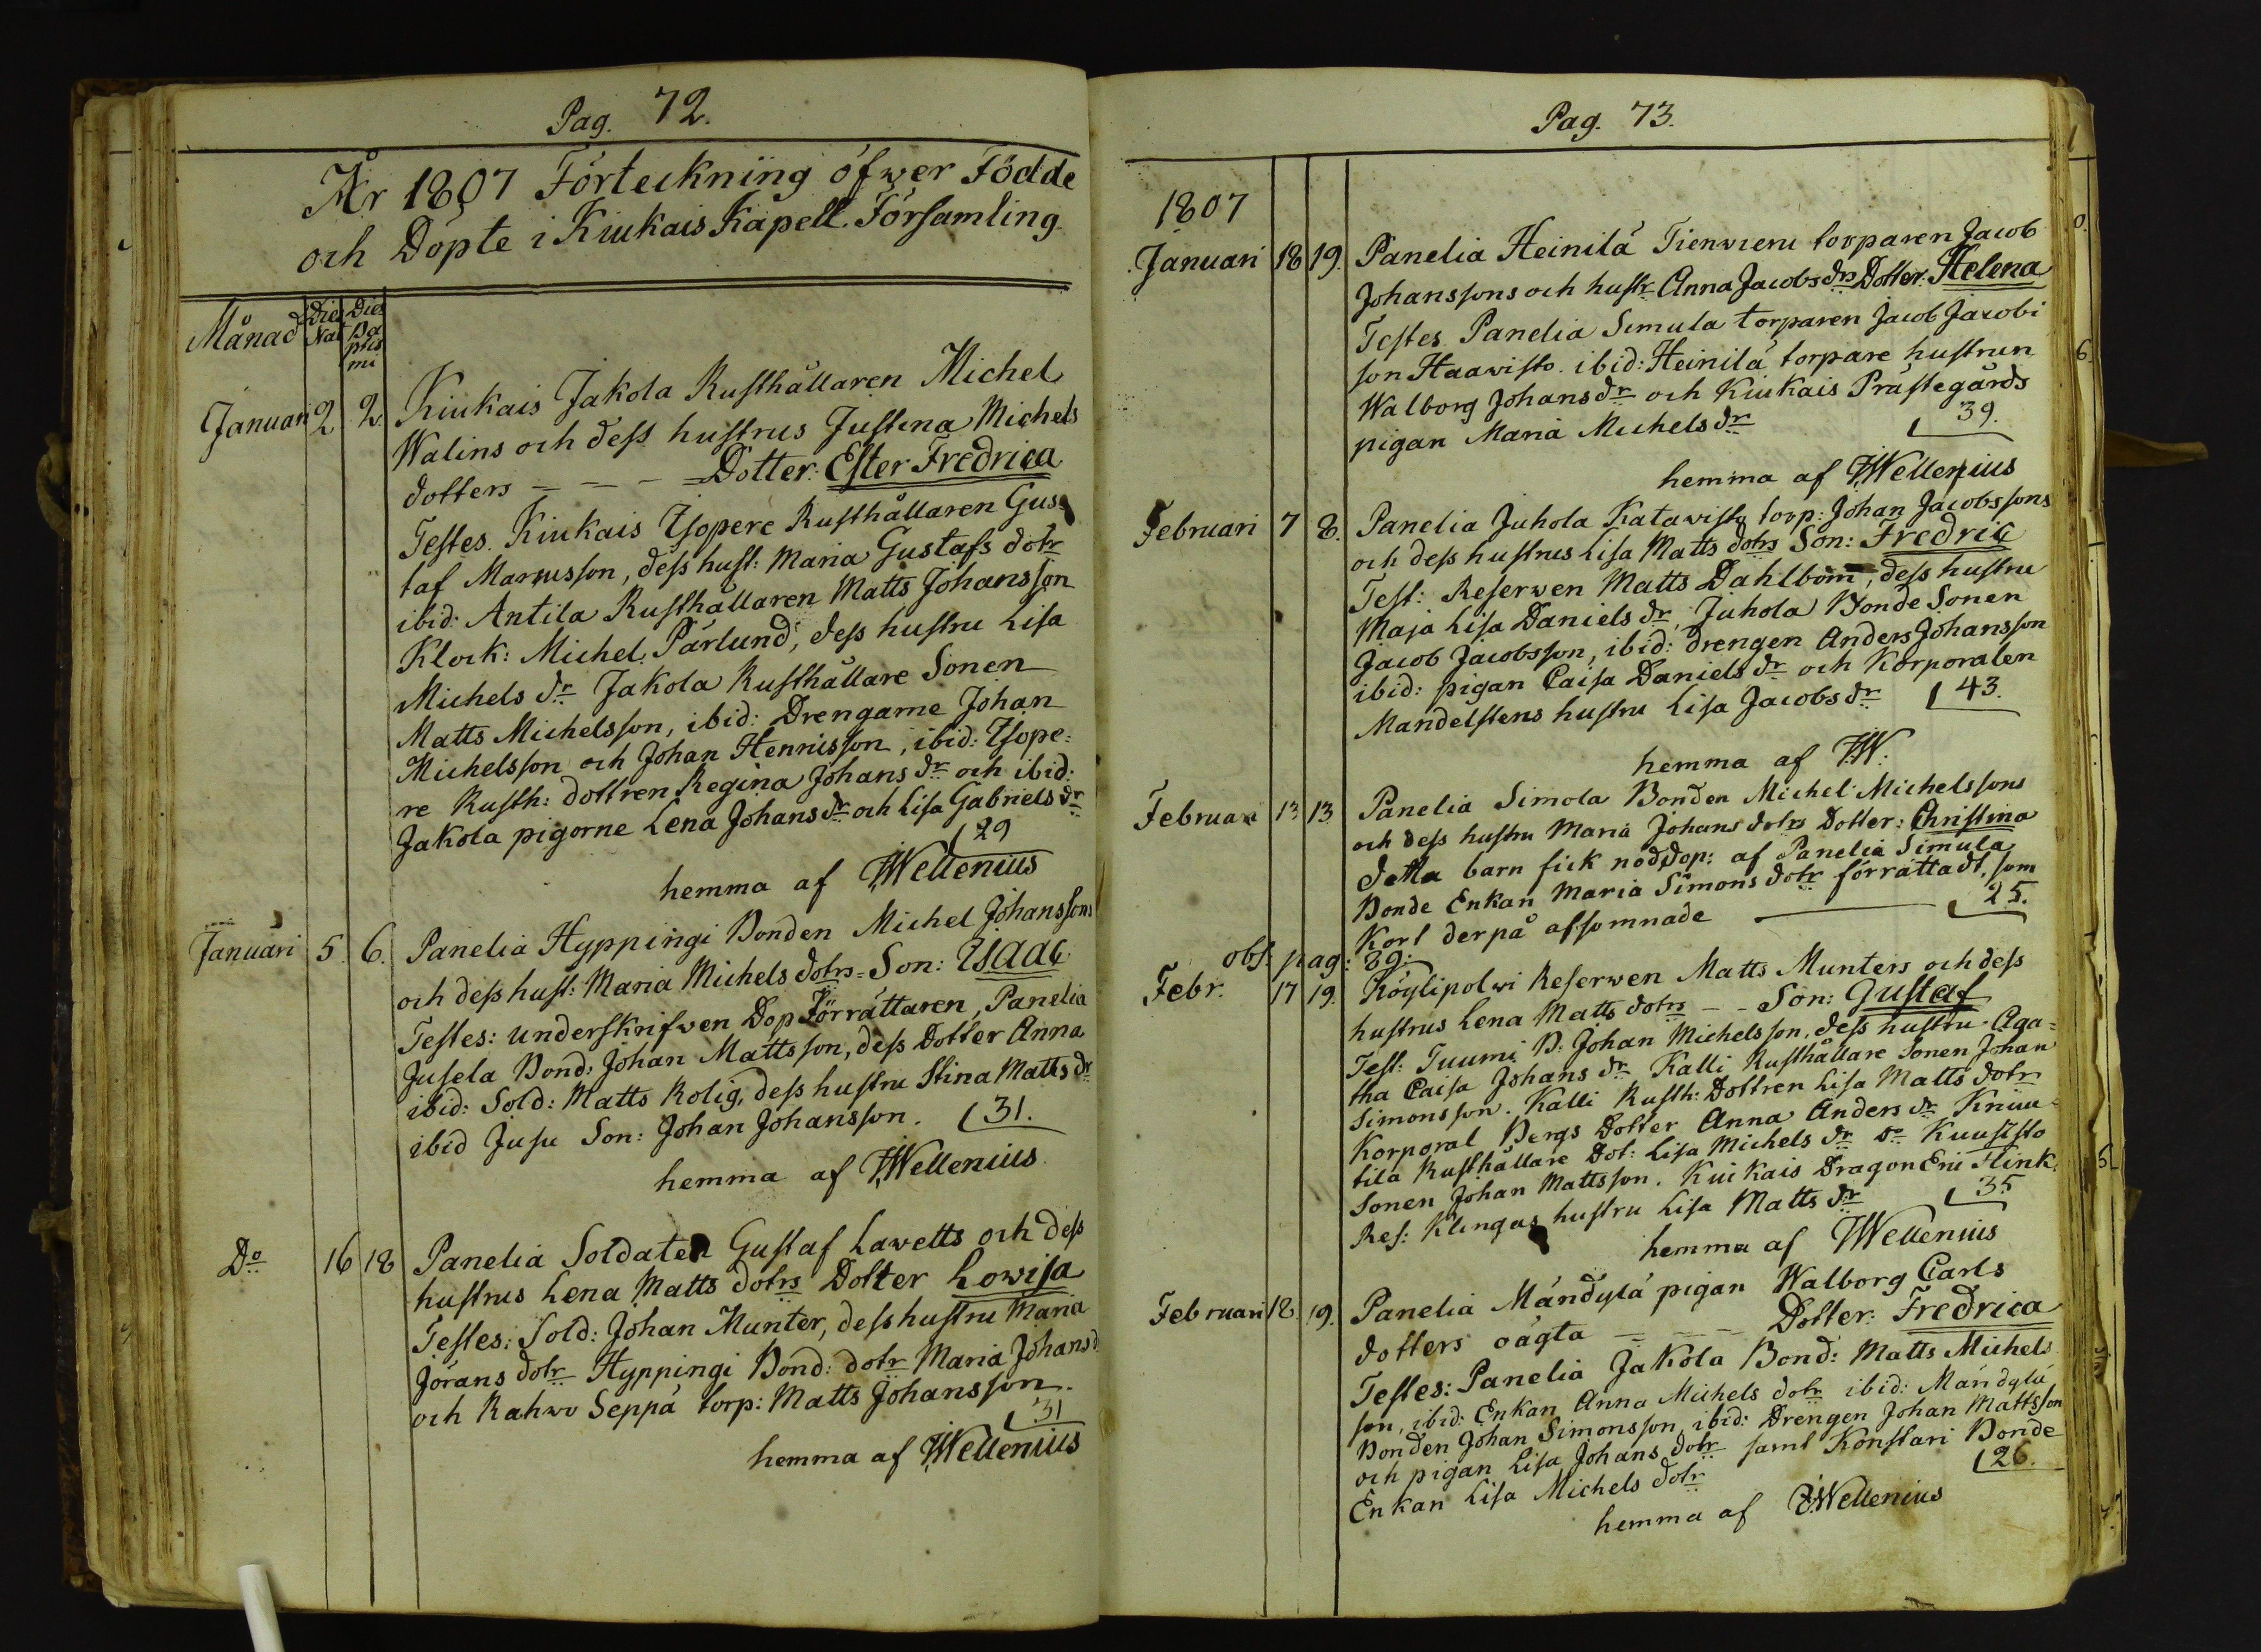 Pag. 72.
År 1807 Förteckning öfwer Födde
och Döpte i Kiukais Kapell Församling
Månad Die Nat Dies Baptismi
Januari 2 2. Kiukais Jakola Rusthållaren Michel
Walins och dess hustrus Justina Michels
dotters – – – Dotter: Ester Fredrica
Testes. Kiukais Isopere Rusthållaren Gus-
taf Marcusson, dess hust: Maria Gustafs dotr
ibid: Antila Rusthållaren Matts Johansson
Klock: Michel Pärlund, dess hustru Lisa
Michels dr Jakola Rusthållare Sonen
Matts Michelsson, ibid: Drengarne Johan
Michelsson och Johan Henricsson, ibid: Isope=
re Rusth: dottren Regina Johans dr och ibid:
Jakola pigorne Lena Johans dr och Lisa Gabriels dr
29
hemma af JWellenius
Januari 5. 6. Panelia Hyppingi Bonden Michel Johanssons
och dess hust: Maria Michels dotrs = Son: Isaac
Testes: underskrifwen Dop Förrättaren, Panelia
Jusela Bond: Johan Mattsson, dess Dotter Anna
ibid: Sold: Matts Rolig, dess hustru Stina Matts dr
ibid Jusu Son: Johan Johansson. 31.
hemma af JWellenius
Do 16 18 Panelia Soldaten Gustaf Lawetts och dess
hustrus Lena Matts dotrs Dotter Lowisa
Testes: Sold: Johan Munter, dess hustru Maria
Jörans dotr Hyppingi Bond: dotr Maria Johans d
och Rahwo Seppä torp: Matts Johansson.
31
hemma af JWellenius
Pag. 73.
1807
Januari 18 19. Panelia Heinilä Tienwieru torparen Jacob
Johanssons och hustr Anna Jacobs drs Dotter: Helena
Testes. Panelia Simula torparen Jacob Jacobi
son Haawisto. ibid: Heinilä torpare hustrun
Walborg Johans dr och Kiukais Prästegårds
pigan Maria Michels dr 39.
hemma af JWellenius
Februari 7 8. Panelia Juhola Katawisto torp: Johan Jacobssons
och dess hustrus Lisa Matts dotrs Son: Fredric
Test: Reserwen Matts Dahlbom, dess hustru
Maja Lisa Daniels dr, Juhola Bonde Sonen
Jacob Jacobsson, ibid: drengen Anders Johansson
ibid: pigan Caisa Daniels dr och Korporalen
Mandelstens hustru Lisa Jacobs dr 43.
hemma af JW.
Februari 13 13 Panelia Simola Bonden Michel Michelssons
och dess hustru Maria Johans dotrs Dotter: Christina
detta barn fick nöddop: af Panelia Simula
Bonde Enkan Maria Simons dotr förrättadt, som
Kort derpå afsomnade 25.
obs. pag: 89:
Febr. 17 19. Köylipolwi Reserwen Matts Munters och dess
hustrus Lena Matts dotrs – – Son: Gustaf
Test: Tuumi B. Johan Michelsson, dess hustru Aga=
tha Caisa Johans dr Kalli Rusthållare Sonen Johan
Simonsson. Kalli Rusth: Dottren Lisa Matts dotr
Korporal Bergs Dotter Anna Anders dr Knuu=
tila Rusthållare Dot: Lisa Michels dr Do Kuusisto
Sonen Johan Mattsson. Kiukais Dragon Eric Flink,
Res: Klingas hustru Lisa Matts dr 35
hemma af JWellenius
Februari 18. 19. Panelia Mändylä pigan Walborg Carls
dotters oägta – – – Dotter: Fredrica
Testes: Panelia Jakola Bond: Matts Michels
son, ibid: Enkan Anna Michels dotr ibid: Mändylä
Bonden Johan Simonsson, ibid: Drengen Johan Mattsson
och pigan Lisa Johans dotr samt Konstari Bonde
Enkan Lisa Michels dotr 26.
hemma af JWellenius